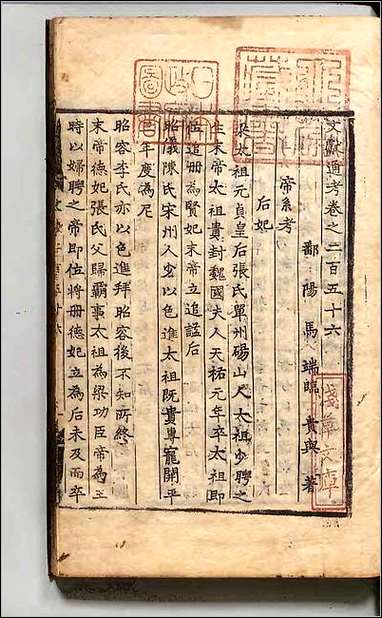 文獻通考卷之二百五十六
鄱陽馬端臨貴與著
帝系考
后妃
梁太祖元貞皇后張氏單州碭山人太祖少聘之
生末帝太祖貴封魏國夫人天祐元年卒太祖即
位追冊為賢妃末帝立追諡后
昭儀陳氏宋州人少以色進太祖既貴專寵開平
年度為尼
昭容李氏亦以色進拜昭容後不知所終
末帝德妃張氏父歸霸事太祖為梁功臣帝為王
時以婦聘之帝即位將冊德妃立為后未及而卒
圖書
淺草文庫